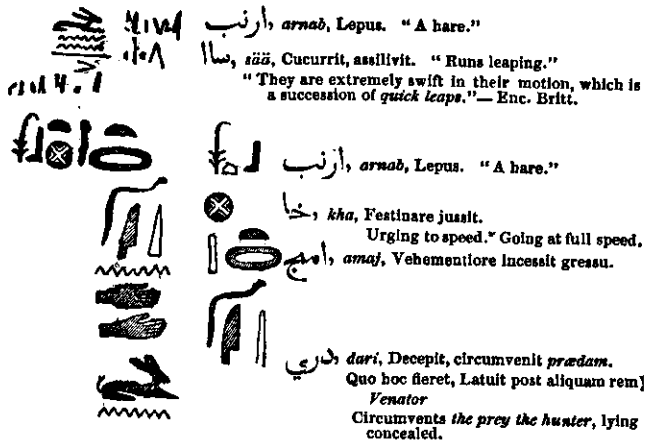 ارنب, arnab, Lepus. "A hare."
ساا, sää, Cucurrit, assilivit. "Runs leaping."
"They are extremely swift in their motion, which is
a succession of quick leaps."— Enc. Britt.
ارنب, arnab, Lepus. "A hare."
خا, kha, Festinare jussit.
Urging to speed." Going at full speed.
امج, amaj, Vehementiore incessit gressu.
دري, dari, Decepit, circumvenit prædam.
Quo hoc fieret, Latuit post aliquam rem}
Venator
Circumvents the prey the hunter, lying
concealed.